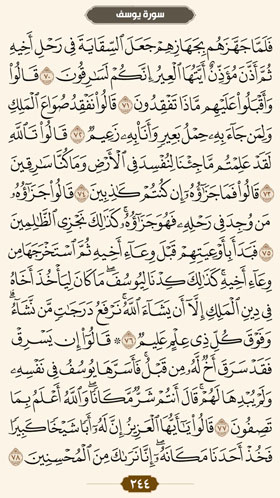 سورة يوسف
فَلَمَّا جَهَّزَهُم بِجَهَازِهِمْ جَعَلَ ٱلسِّقَايَةَ فِى رَحْلِ أَخِيهِ
ثُمَّ أَذَّنَ مُؤَذِّنٌ أَيَّتُهَا ٱلْعِيرُ إِنَّكُمْ لَسَٰرِقُونَ ٧٠ قَالُوا۟
وَأَقْبَلُوا۟ عَلَيْهِم مَّاذَا تَفْقِدُونَ ٧١ قَالُوا۟ نَفْقِدُ صُوَاعَ ٱلْمَلِكِ
وَلِمَن جَآءَ بِهِۦ حِمْلُ بَعِيرٍ وَأَنَا۠ بِهِۦ زَعِيمٌ ٧٢ قَالُوا۟ تَٱللَّهِ
لَقَدْ عَلِمْتُم مَّا جِئْنَا لِنُفْسِدَ فِى ٱلْأَرْضِ وَمَا كُنَّا سَٰرِقِينَ
٧٣ قَالُوا۟ فَمَا جَزَٰٓؤُهُۥٓ إِن كُنتُمْ كَٰذِبِينَ ٧٤ قَالُوا۟ جَزَٰٓؤُهُۥ
مَن وُجِدَ فِى رَحْلِهِۦ فَهُوَ جَزَٰٓؤُهُۥ ۚ كَذَٰلِكَ نَجْزِى ٱلظَّٰلِمِينَ
٧٥ فَبَدَأَ بِأَوْعِيَتِهِمْ قَبْلَ وِعَآءِ أَخِيهِ ثُمَّ ٱسْتَخْرَجَهَا مِن
وِعَآءِ أَخِيهِ ۚ كَذَٰلِكَ كِدْنَا لِيُوسُفَ ۖ مَا كَانَ لِيَأْخُذَ أَخَاهُ
فِى دِينِ ٱلْمَلِكِ إِلَّآ أَن يَشَآءَ ٱللَّهُ ۚ نَرْفَعُ دَرَجَٰتٍ مَّن نَّشَآءُ ۗ
وَفَوْقَ كُلِّ ذِى عِلْمٍ عَلِيمٌ ٧٦ ۞ قَالُوٓا۟ إِن يَسْرِقْ
فَقَدْ سَرَقَ أَخٌ لَّهُۥ مِن قَبْلُ ۚ فَأَسَرَّهَا يُوسُفُ فِى نَفْسِهِۦ
وَلَمْ يُبْدِهَا لَهُمْ ۚ قَالَ أَنتُمْ شَرٌّ مَّكَانًا ۖ وَٱللَّهُ أَعْلَمُ بِمَا
تَصِفُونَ ٧٧ قَالُوا۟ يَٰٓأَيُّهَا ٱلْعَزِيزُ إِنَّ لَهُۥٓ أَبًا شَيْخًا كَبِيرًا
فَخُذْ أَحَدَنَا مَكَانَهُۥٓ ۖ إِنَّا نَرَىٰكَ مِنَ ٱلْمُحْسِنِينَ ٧٨
٢٤٤